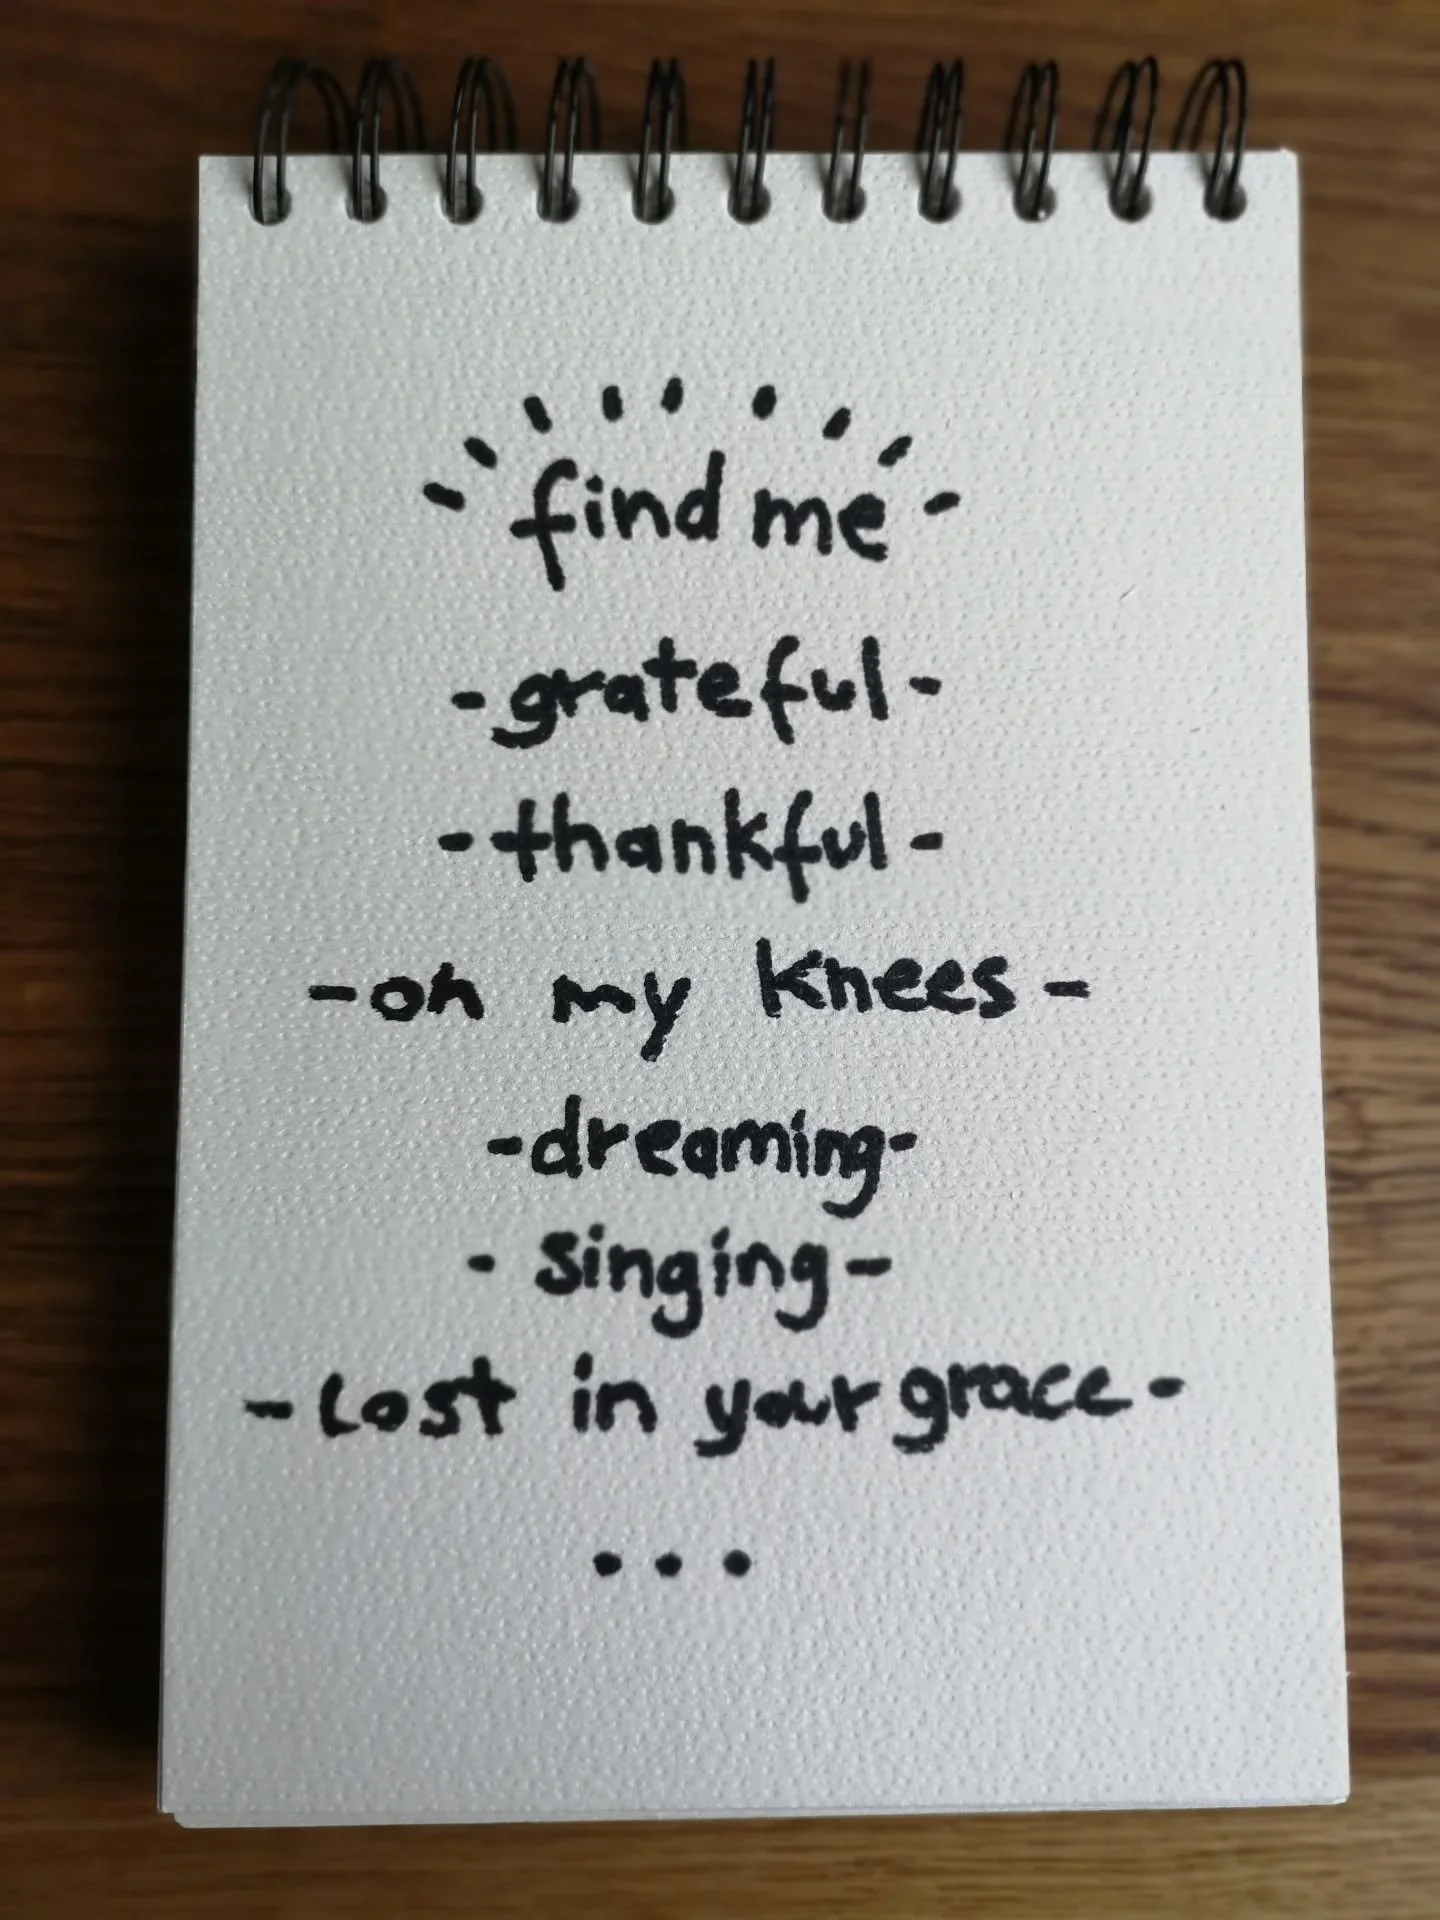 find me
-grateful-
-thankful-
-on my knees-
-dreaming-
- singing-
-Lost in your grace-
...